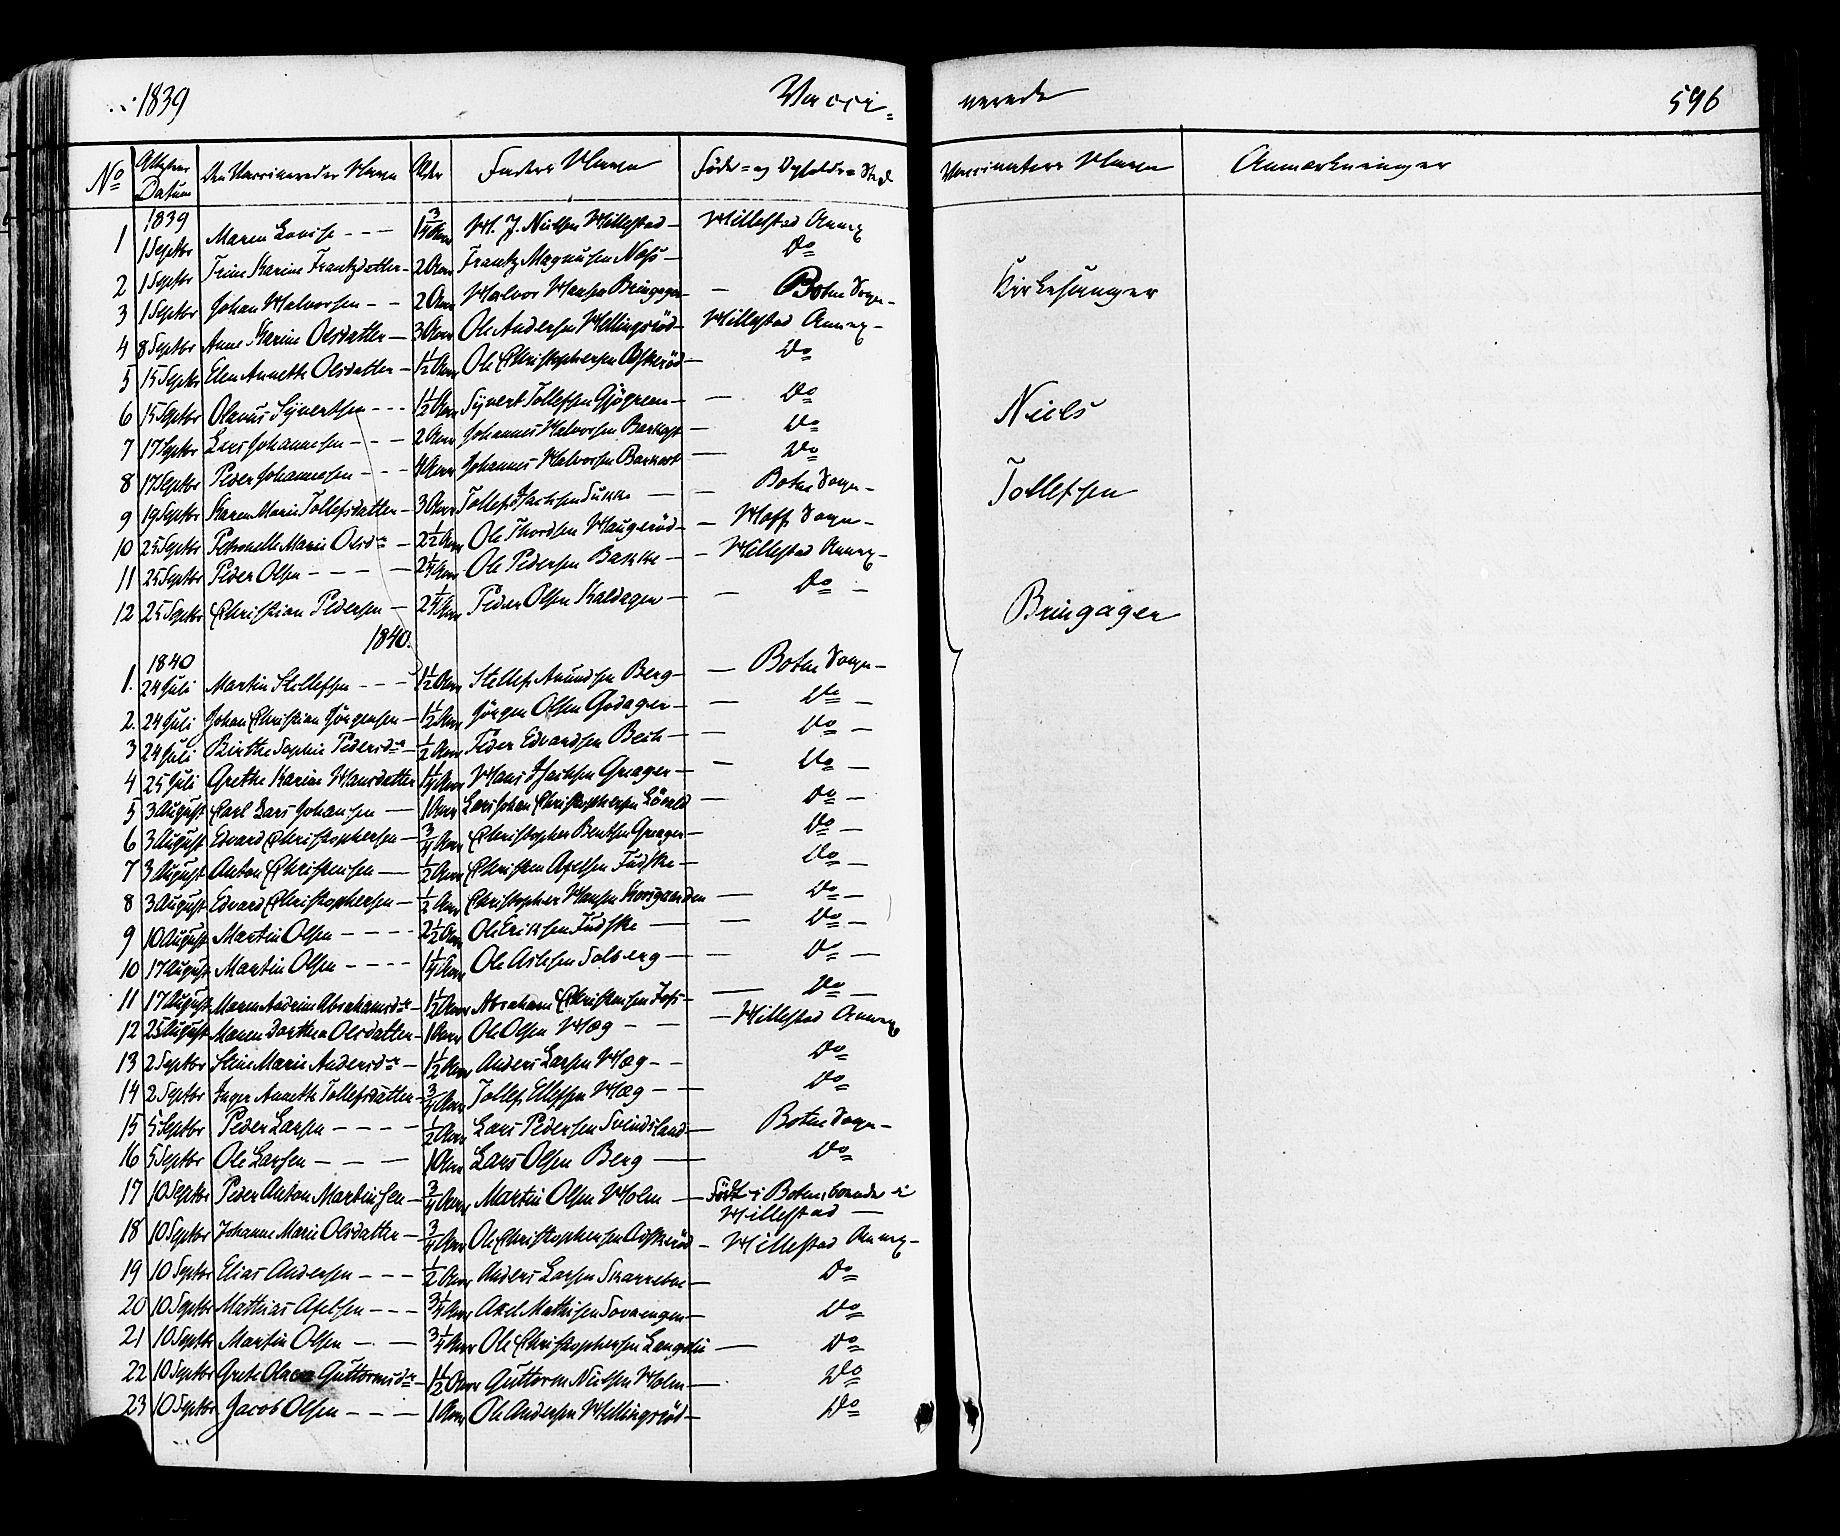 1839 Vacci-
nerede 596
No Attestens Datum Den Vaccineredes Navn Alder Faders Navn Føde- og Opholds-Sted
Vaccinateurs Navn Anmærkninger
1839
1 1 Septbr Maren Lovise - - - 1¾ Aar H. J. Nielsen Hillestad - Hillestad Annex
2 1 Septbr Trine Karine Frantzdatter - 2 Aar Frantz Magnusen Næss - Do
3 1 Septbr Johan Halvorsen - - 2 Aar Halvor Hansen Bringager - Botne Sogn -
4 8 Septbr Anne Karine Olsdatter - 3 Aar Ole Andersen Hellingsröd - Hillestad Annex -
5 15 Septbr Elen Annette Olsdatter - 1½ Aar Ole Christophersen Askeröd - Do
6 15 Septbr Olavus Syvertsen - - - 1½ Aar Syvert Tollefsen - Do
7 17 Septbr Lars Johannesen - - - 2 Aar Johannes Halvorsen Barkost - Do
8 17 Septbr Peder Johannesen - - - 4 Aar Johannes Halvorsen Barkost - Do
9 19 Septbr Karen Marie Tollefsdatter - 3 Aar Tollef Isachsen Sukke - Botne Sogn -
10 25 Septbr Petronelle Marie Olsdr - 2½ Aar Ole Thordsen Haugeröd - Hoff Sogn -
11 25 Septbr Peder Olsen - - - - 2¼ Aar Ole Pedersen Bakke - Hillestad Annex -
12 25 Septbr Christian Pedersen - 2¼ Aar Peder Olsen Kaldager - Do -
1840.
1840
1. 24 Juli Martin Stillefsen - - - 1½ Aar Stillef Amundsen Berg - Botne Sogn -
2. 24 Juli Johan Christian Jörgensen - 1½ Aar Jörgen Olsen Godager - Do -
3 24 Juli Birthe Sophie Pedersdr - ½ Aar Peder Edvardsen Bech - Do -
4 25 Juli Grethe Karine Hansdatter 1¼ Aar Hans Isachsen Greager - Do -
5 3 August Carl Lars Johansen - 1 Aar Lars Johan Christophersen Lövald - Do -
6 3 August Edvard Christophersen - ¾ Aar Christopher Bentsen Greager - Do -
7 3 August Anton Christensen - ½ Aar Christen Axelsen Fudske - Do -
8 3 August Edvard Christophersen - ½ Aar Christopher Hansen Korsgaarden - Do -
9 10 August Martin Olsen - - - - 2½ Aar Ole Eriksen Fudske - Do -
10 17 August Martin Olsen - - - - 1¼ Aar Ole Solberg - Do -
11 17 August Maren Andrine Abrahamsdr 1½ Aar Abraham Christensen - Do -
12 25 August Maren Dorthea Olsdatter - 1 Aar Ole Olsen Hæg - - Hillestad Annex
13 2 Septbr Stine Marie Andersdr - 1½ Aar Anders Larsen Hæg - - Do
14 2 Septbr Inger Annette Tollefsdatter - ¾ Aar Tollef Ellefsen Hæg - - Do
15 5 Septbr Peder Larsen - - - - ½ Aar Lars Pedersen Svindsland - Botne Sogn -
16 5 Septbr Ole Larsen - - - 1 Aar Lars Olsen Berg - Do
17 10 Septbr Peder Anton Martinsen - ¾ Aar Martin Olsen Holm - Födt i Botne, boende i
Hillestad -
18 10 Septbr Johanne Marie Olsdatter - ¾ Aar Ole Christophersen Askeröd - Hillestad Annex -
19 10 Septbr Elias Andersen - - - ½ Aar Anders Larsen Skarrebo - Do
20 10 Septbr Mathias Axelsen - - - 3¼ Aar Axel Mathisen - Do
21 10 Septbr Martin Olsen - - 3¼ Aar Ole Christophersen Langelie - Do
22 10 Septbr Grete Olava Guttormsdr - 1½ Aar Guttorm Nielsen Holm - Do
23 10 Septbr Jacob Olsen - - - 1 Aar Ole Andersen Hellingsröd - Do
Kirkesanger
Niels
Tollefsen
Bringager